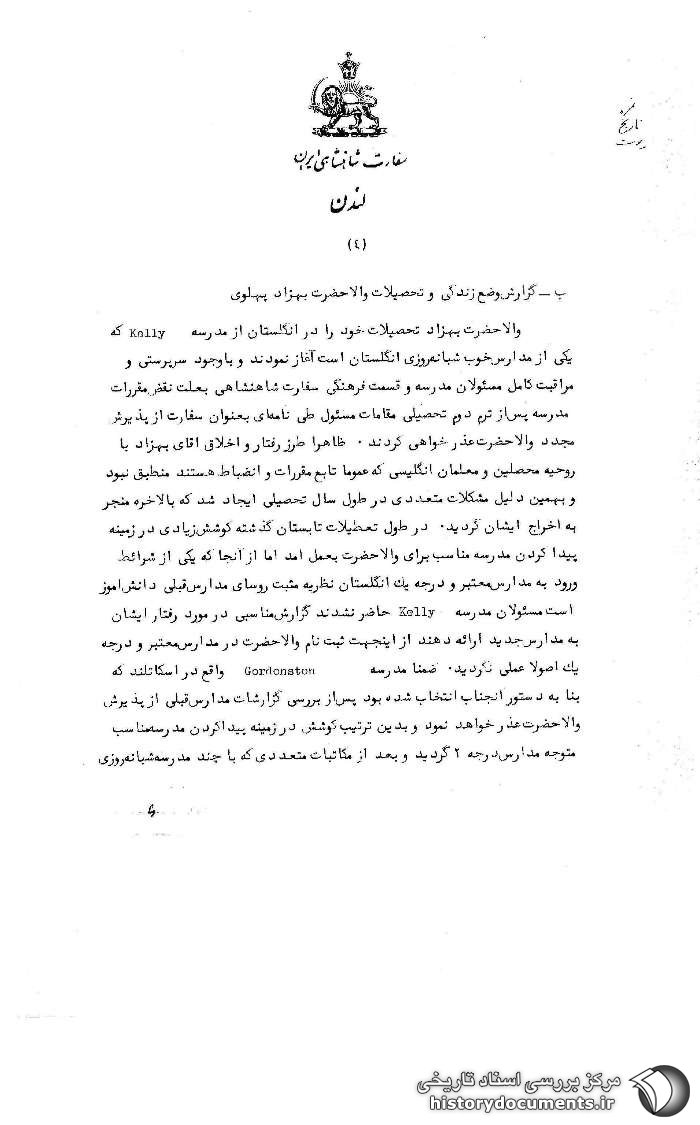 نمره
تاریخ
پیوست
سفارت شاهنشاهی ایران
لندن
(٤)
ب ــ گزارش وضع زندگی و تحصیلات والاحضرت بهزاد پهلوی
والاحضرت بهزاد تحصیلات خود را در انگلستان از مدرسه Kelly که
یکی از مدارس خوب شبانه‌روزی انگلستان است آغاز نمودند و باوجود سرپرستی و
مراقبت کامل مسئولان مدرسه و قسمت فرهنگی سفارت شاهنشاهی بعلت نقض مقررات
مدرسه پس از ترم دوم تحصیلی مقامات مسئول طی نامه‌ای بعنوان سفارت از پذیرش
مجدد والاحضرت عذر خواهی کردند . ظاهرا طرز رفتار و اخلاق اقای بهزاد با
روحیه محصلین و معلمان انگلیسی که عموما تابع مقررات و انضباط هستند منطبق نبود
و بهمین دلیل مشکلات متعددی در طول سال تحصیلی ایجاد شد که بالاخره منجر
به اخراج ایشان گردید. در طول تعطیلات تابستان گذشته کوشش زیادی در زمینه
پیدا کردن مدرسه مناسب برای والاحضرت بعمل امد اما از آنجا که یکی از شرائط
ورود به مدارس معتبر و درجه یك انگلستان نظریه مثبت روسای مدارس قبلی دانش اموز
است مسئولان مدرسه Kelly حاضر نشدند گزارش مناسبی در مورد رفتار ایشان
به مدارس جدید ارائه دهند از اینجهت ثبت نام والاحضرت در مدارس معتبر و درجه
یك اصولا عملی نگردید. ضمنا مدرسه Gordonston واقع در اسکاتلند که
بنا به دستور انجناب انتخاب شده بود پس از بررسی گزارشات مدارس قبلی از پذیرش
والاحضرت عذر خواهد نمود و بدین ترتیب کوشش در زمینه پیدا کردن مدرسه مناسب
متوجه مدارس درجه ۲ گردید و بعد از مکاتبات متعددی که با چند مدرسه شبانه‌روزی
مرکز بررسی اسناد تاریخی
historydocuments.ir